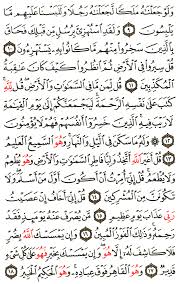 وَلَوْ جَعَلْنَٰهُ مَلَكًا لَّجَعَلْنَٰهُ رَجُلًا وَلَلَبَسْنَا عَلَيْهِم مَّا
يَلْبِسُونَ ٩ وَلَقَدِ ٱسْتُهْزِئَ بِرُسُلٍ مِّن قَبْلِكَ فَحَاقَ
بِٱلَّذِينَ سَخِرُوا۟ مِنْهُم مَّا كَانُوا۟ بِهِۦ يَسْتَهْزِءُونَ ١٠
قُلْ سِيرُوا۟ فِى ٱلْأَرْضِ ثُمَّ ٱنظُرُوا۟ كَيْفَ كَانَ عَٰقِبَةُ
ٱلْمُكَذِّبِينَ ١١ قُل لِّمَن مَّا فِى ٱلسَّمَٰوَٰتِ وَٱلْأَرْضِ قُل لِّلَّهِ
كَتَبَ عَلَىٰ نَفْسِهِ ٱلرَّحْمَةَ لَيَجْمَعَنَّكُمْ إِلَىٰ يَوْمِ ٱلْقِيَٰمَةِ
لَا رَيْبَ فِيهِ ٱلَّذِينَ خَسِرُوٓا۟ أَنفُسَهُمْ فَهُمْ لَا يُؤْمِنُونَ
١٢ وَلَهُۥ مَا سَكَنَ فِى ٱلَّيْلِ وَٱلنَّهَارِ وَهُوَ ٱلسَّمِيعُ ٱلْعَلِيمُ
١٣ قُلْ أَغَيْرَ ٱللَّهِ أَتَّخِذُ وَلِيًّا فَاطِرِ ٱلسَّمَٰوَٰتِ وَٱلْأَرْضِ وَهُوَ يُطْعِمُ
وَلَا يُطْعَمُ قُلْ إِنِّىٓ أُمِرْتُ أَنْ أَكُونَ أَوَّلَ مَنْ أَسْلَمَ وَلَا
تَكُونَنَّ مِنَ ٱلْمُشْرِكِينَ ١٤ قُلْ إِنِّىٓ أَخَافُ إِنْ عَصَيْتُ
رَبِّى عَذَابَ يَوْمٍ عَظِيمٍ ١٥ مَّن يُصْرَفْ عَنْهُ يَوْمَئِذٍ فَقَدْ
رَحِمَهُۥ وَذَٰلِكَ ٱلْفَوْزُ ٱلْمُبِينُ ١٦ وَإِن يَمْسَسْكَ ٱللَّهُ بِضُرٍّ
فَلَا كَاشِفَ لَهُۥٓ إِلَّا هُوَ وَإِن يَمْسَسْكَ بِخَيْرٍ فَهُوَ عَلَىٰ كُلِّ شَىْءٍ
قَدِيرٌ ١٧ وَهُوَ ٱلْقَاهِرُ فَوْقَ عِبَادِهِۦ وَهُوَ ٱلْحَكِيمُ ٱلْخَبِيرُ ١٨